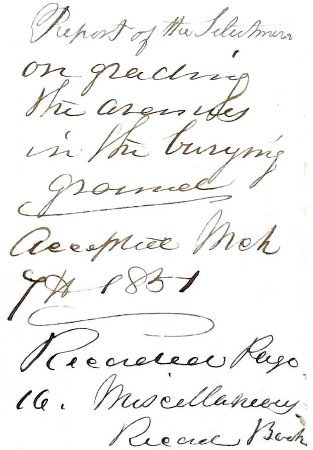 Report of the Selectmen
on grading
the avenues
in the burying
ground
Accepted Mch
7th 1851
Recorded Page
16. Miscellaneous
Record Book